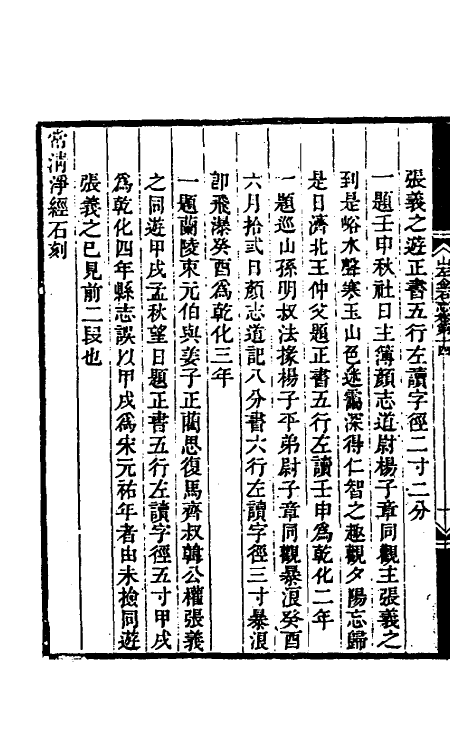 張義之遊正書五行左讀字徑二寸二分
一題壬申秋社日主簿顏志道尉楊子章同觀主張義之
到是峪水聲寒玉山色逐靄深得仁智之趣觀夕陽忘歸
是日濟北王仲父題正書五行左讀壬申爲乾化二年
一題巡山孫明叔法掾楊子平弟尉子章同觀暴㳰癸酉
六月拾弍日顏志道記八分書六行左讀字徑三寸暴浪
卽飛瀑癸酉爲乾化三年
一題蘭陵東元伯與姜子正藺思復馬齊叔韓公權張義
之同遊甲戌孟秋望日題正書五行左讀字徑五寸甲戌
爲乾化四年縣志誤以甲戌爲宋元祐年者由未檢同遊
張義之已見前二段也
常清淨經石刻